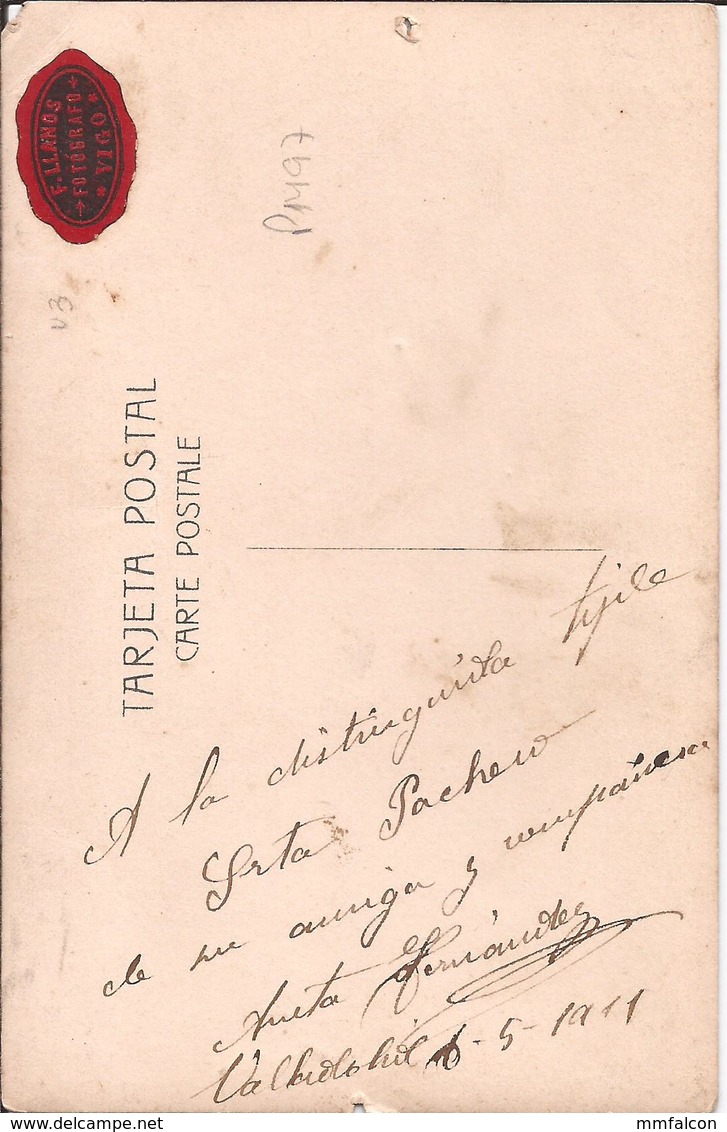 F. LLANOS
FOTÓGRAFO
VIGO
P1497
V3
TARJETA POSTAL
CARTE POSTALE
A la distinguida tiple
Srta Pacheco
de su amiga y compañera
Fernández
Valladolid 6-5-1911
delcampe.net
mmfalcon